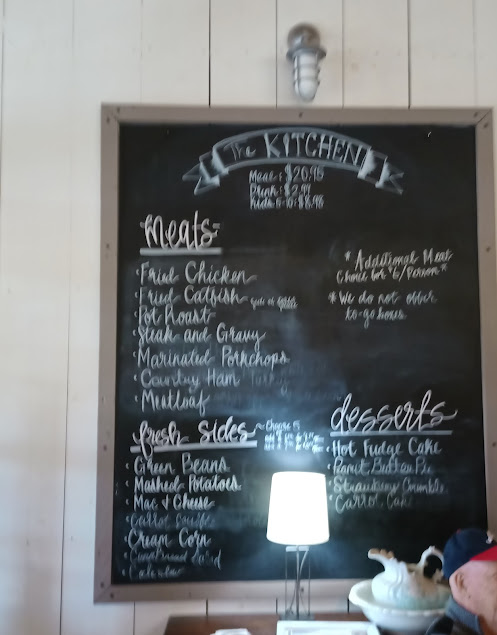 The KITCHEN
Meal: $20.95
Drink: $2.99
Kids 4-10: $8.95
Meats
* Additional Meat
Choice for $6/Person *
* We do not offer
to-go boxes
· Fried Chicken
· Fried Catfish
· Pot Roast
· Steak and Gravy
· Marinated Porkchops
· Country Ham
· Meatloaf
fresh sides ~ Choose 5
· Green Beans
· Mashed Potatoes
· Mac & Cheese
· Carrot Souffle
· Cream Corn
· Cornbread Salad
· Coleslaw
desserts
· Hot Fudge Cake
· Peanut Butter Pie
· Strawberry Crumble
· Carrot Cake